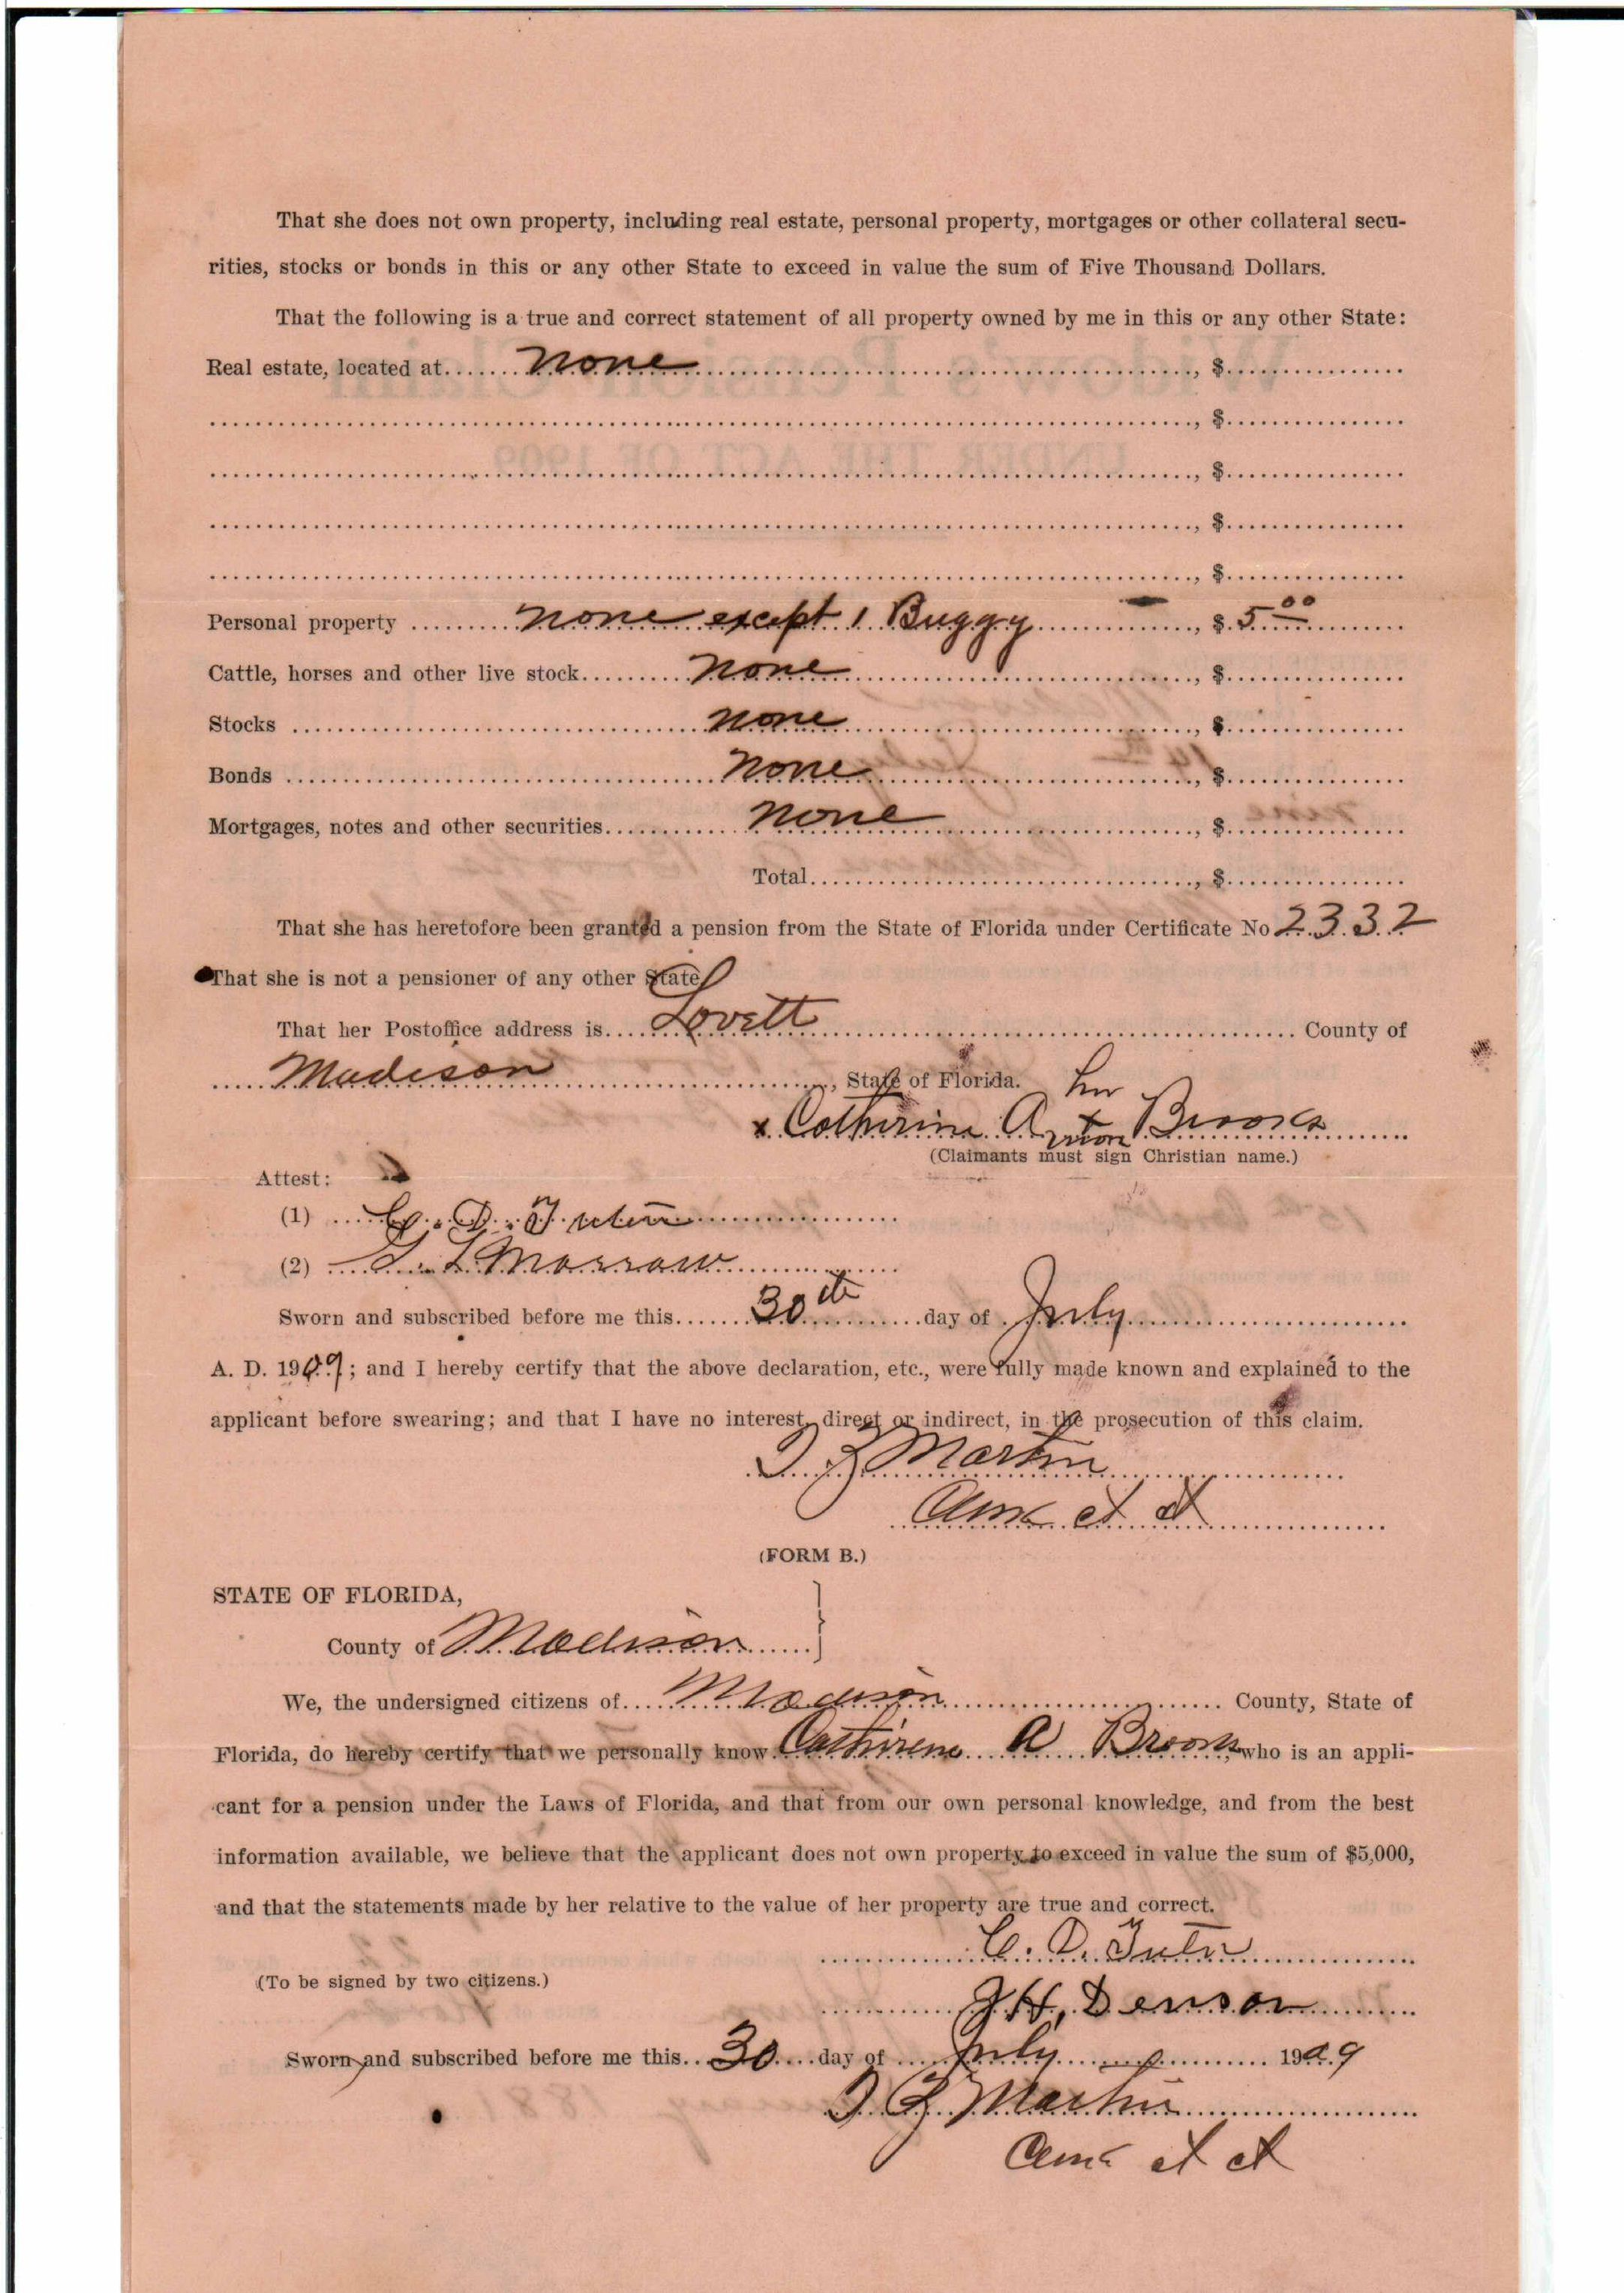 That she does not own property, including real estate, personal property, mortgages or other collateral secu-
rities, stocks or bonds in this or any other State to exceed in value the sum of Five Thousand Dollars.
That the following is a true and correct statement of all property owned by me in this or any other State:
Real estate, located at.......none..............................., $................
..............................., $................
..............................., $................
..............................., $................
..............................., $................
Personal property .........none except 1 Buggy..............., $ 5 00
Cattle, horses and other live stock.........none..............., $................
Stocks .........none..............., $................
Bonds .........none..............., $................
Mortgages, notes and other securities............none..............., $................
Total..............................., $................
That she has heretofore been granted a pension from the State of Florida under Certificate No 2332
That she is not a pensioner of any other State
That her Postoffice address is....Lovett............... County of
.....Madison..............., State of Florida.
her
x Catherine A x Brooks
(Claimants must sign Christian name.)
Attest:
(1) ....C. D. Tuten
(2) .... L Morrow
Sworn and subscribed before me this.......30th..........day of July
A. D. 1909; and I hereby certify that the above declaration, etc., were fully made known and explained to the
applicant before swearing; and that I have no interest, direct or indirect, in the prosecution of this claim.
Martin
(FORM B.)
STATE OF FLORIDA,
County of Madison
We, the undersigned citizens of....Madison............... County, State of
Florida, do hereby certify that we personally know Cathirene A Brooks, who is an appli-
cant for a pension under the Laws of Florida, and that from our own personal knowledge, and from the best
information available, we believe that the applicant does not own property to exceed in value the sum of $5,000,
and that the statements made by her relative to the value of her property are true and correct.
C. D. Tuten
(To be signed by two citizens.)
J H. Denson
Sworn and subscribed before me this..30....day of ....July............... 1909
Martin